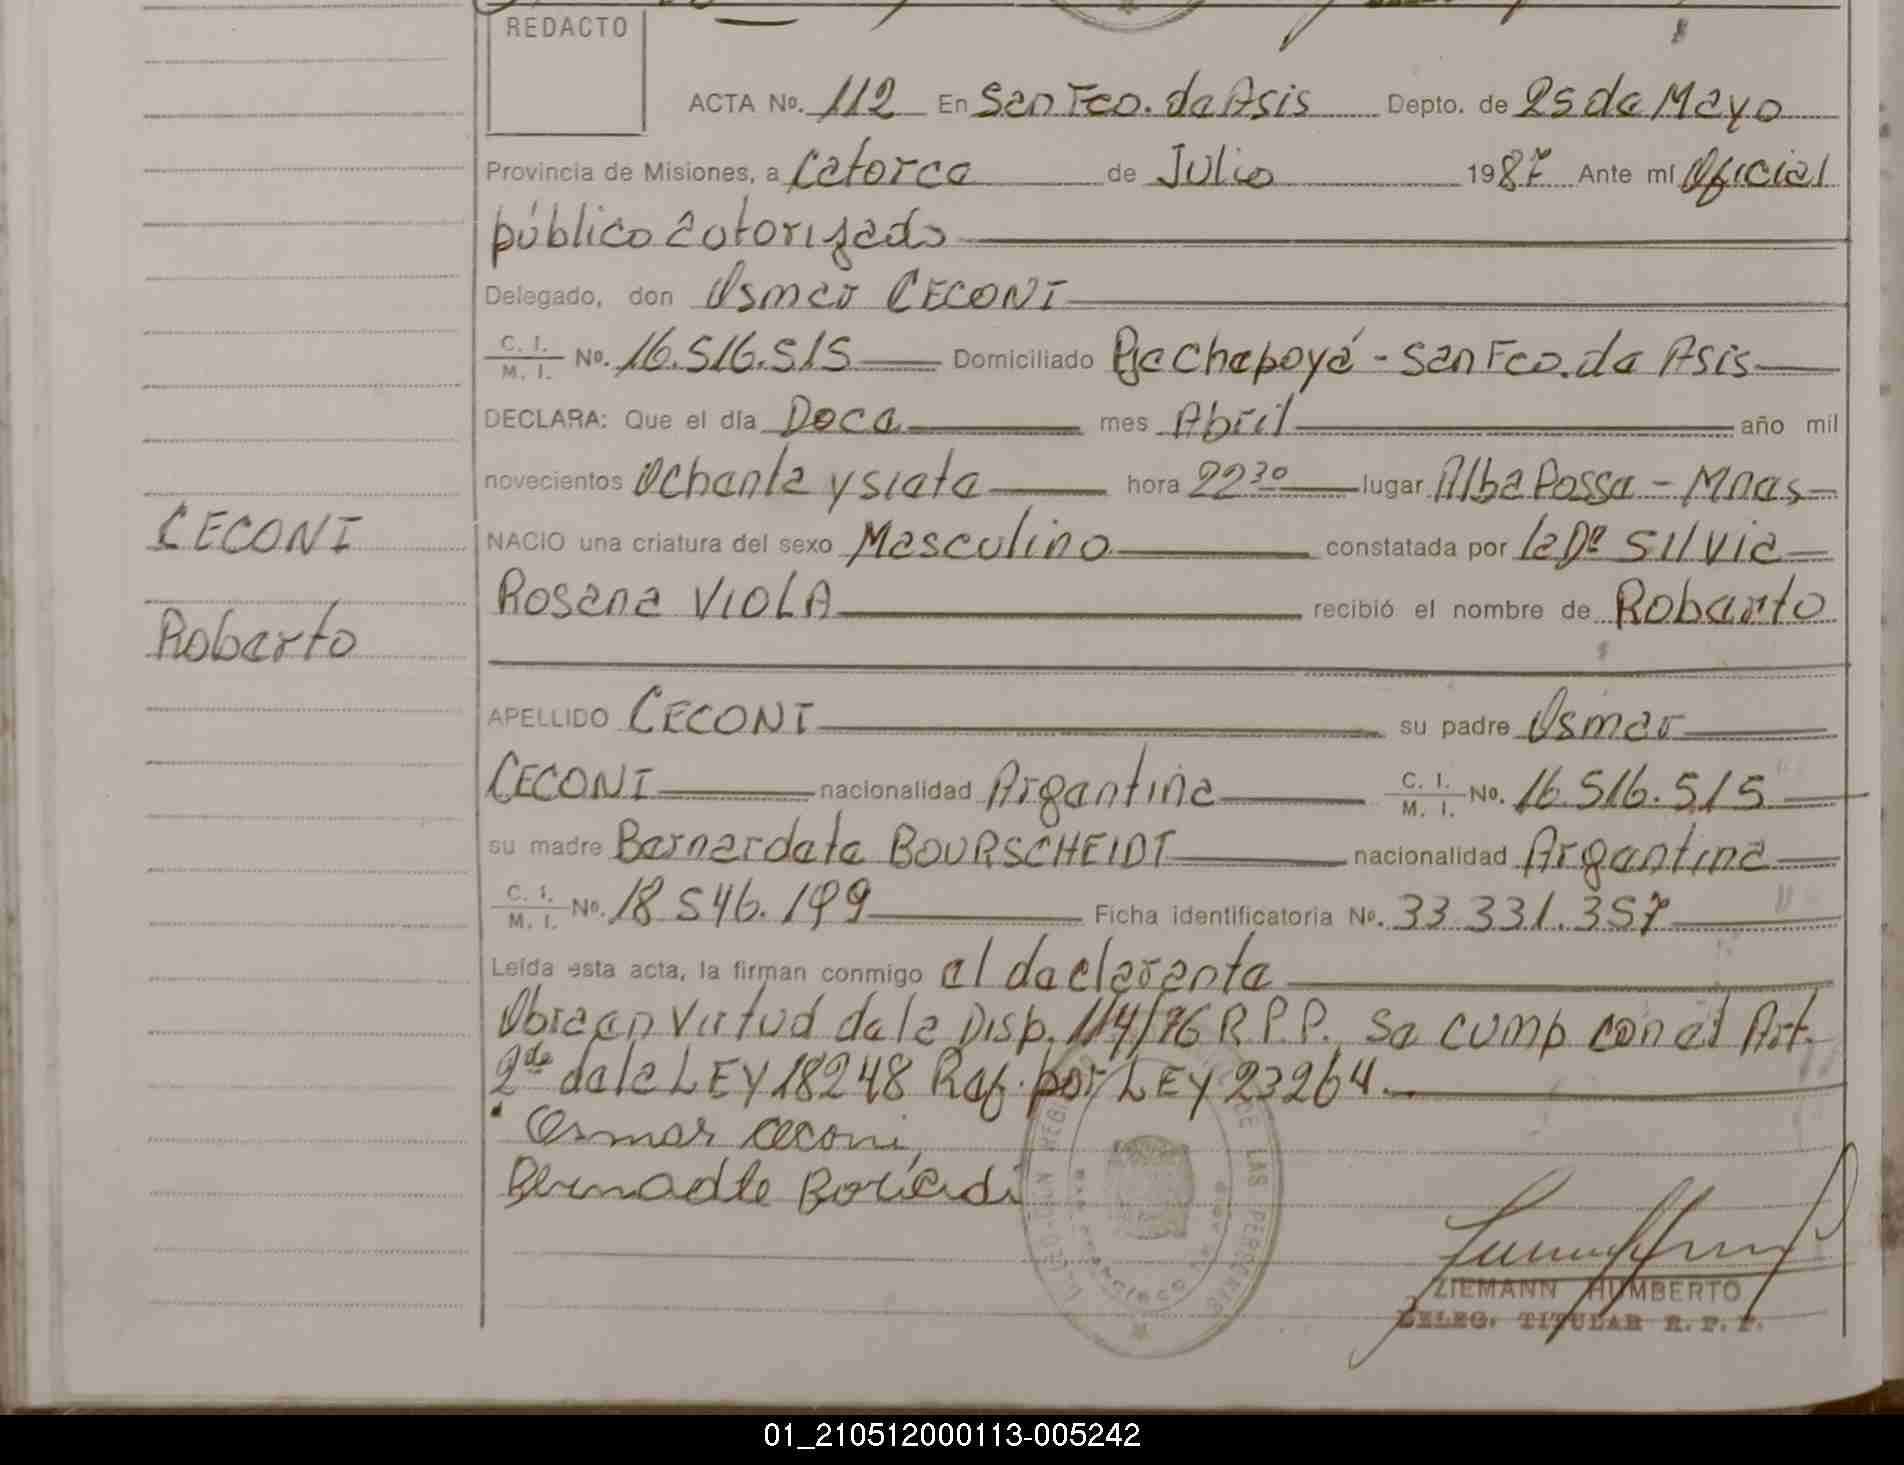 REDACTO
ACTA Nº. 112 En San Fco. de Asis Depto. de 25 de Mayo
Provincia de Misiones, a catorce de Julio 1987 Ante mí Oficial
público autorizado
Delegado, don Osmar CECONI
C. I. / M. I. Nº. 16.516.515 Domiciliado Pje Chapoyá - San Fco. de Asis
DECLARA: Que el día Doce mes Abril año mil
novecientos Ochenta y siete hora 22 30 lugar Alba Posse - Mnes
CECONI
NACIO una criatura del sexo Masculino constatada por la Dra SILVIA
Rosana VIOLA recibió el nombre de Roberto
Roberto
APELLIDO CECONI su padre Osmar
CECONI nacionalidad Argentina C. I. / M. I. Nº. 16.516.515
su madre Bernardete BOURSCHEIDT nacionalidad Argentina
C. I. / M. I. Nº. 18.546.199 Ficha identificatoria Nº. 33.331.357
Leída esta acta, la firman conmigo el declarante
Obra en virtud de la Disp. 114/76 R.P.P. Se cump con el Art.
2do de la LEY 18248 Ref. por LEY 23264.
Osmar Ceconi
ZIEMANN HUMBERTO
DELEG. TITULAR R. P. P.
01_210512000113-005242